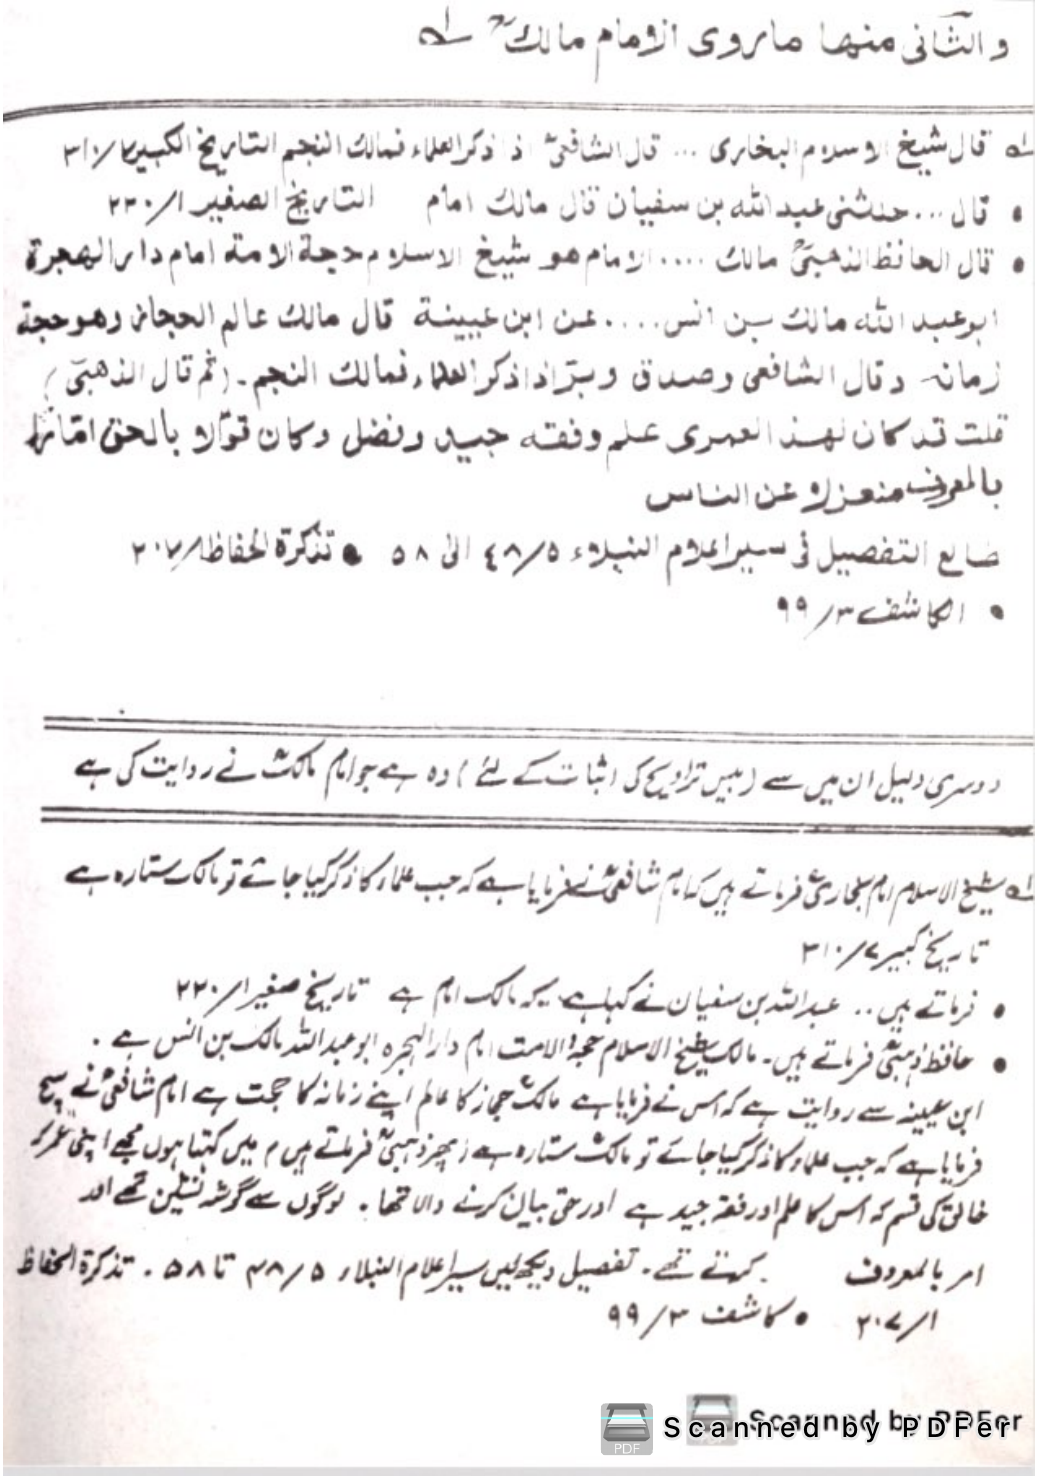 والثانی منہا ماروی الامام مالکؒ لہ
لہ قال شیخ الاسلام البخاری ... قال الشافعیؒ اذا ذکر العلماء فمالک النجم التاریخ الکبیر ۷/۳۱۰
• قال ... حدثنی عبد اللہ بن سفیان قال مالک امام التاریخ الصغیر ۱/۲۳۰
• قال الحافظ الذهبیؒ مالک .... الامام هو شیخ الاسلام حجة الامة امام دار الهجرة
ابو عبد اللہ مالک بن انس .... عن ابن عیینة قال مالک عالم الحجاز وهو حجة
زمانہ وقال الشافعی وصدق وبرّ اذا ذکر العلماء فمالک النجم۔ (ثم قال الذهبیؒ)
قلت قد کان لهذا العمری علم وفقه جید وفضل وکان قوّالا بالحق امّارًا
بالمعروف منعزلا عن الناس
طالع التفصیل فی سیر اعلام النبلاء ۵/۴۸ الی ۵۸ • تذکرة الحفاظ ۱/۲۰۷
• الکاشف ۳/۹۹
دوسری دلیل ان میں سے (بیس تراویح کی اثبات کے لئے) وہ ہے جو امام مالکؒ نے روایت کی ہے
لہ شیخ الاسلام امام بخاریؒ فرماتے ہیں کہ امام شافعیؒ نے فرمایا ہے کہ جب علماء کا ذکر کیا جائے تو مالک ستارہ ہے
تاریخ کبیر ۷/۳۱۰
• فرماتے ہیں .. عبد اللہ بن سفیان نے کہا ہے کہ مالک امام ہے تاریخ صغیر ۱/۲۲۰
• حافظ ذہبیؒ فرماتے ہیں۔ مالک شیخ الاسلام حجۃ الامت امام دار الہجرہ ابو عبد اللہ مالک بن انس ہے ۔
ابن عیینہ سے روایت ہے کہ اس نے فرمایا ہے مالکؒ حجاز کا عالم اپنے زمانہ کا حجت ہے امام شافعیؒ نے سچ
فرمایا ہے کہ جب علماء کا ذکر کیا جائے تو مالکؒ ستارہ ہے (پھر ذہبیؒ فرماتے ہیں) میں کہتا ہوں مجھے اپنی عمر کے
خالق کی قسم کہ اس کا علم اور فقہ جید ہے اور حق بیان کرنے والا تھا ۔ لوگوں سے گوشہ نشین تھے اور
امر بالمعروف کہتے تھے۔ تفصیل دیکھ لیں سیر اعلام النبلاء ۵/۴۸ تا ۵۸ ۔ تذکرة الحفاظ
۱/۲۰۷ • کاشف ۳/۹۹
Scanned by PDFer
Scanned by PDFer